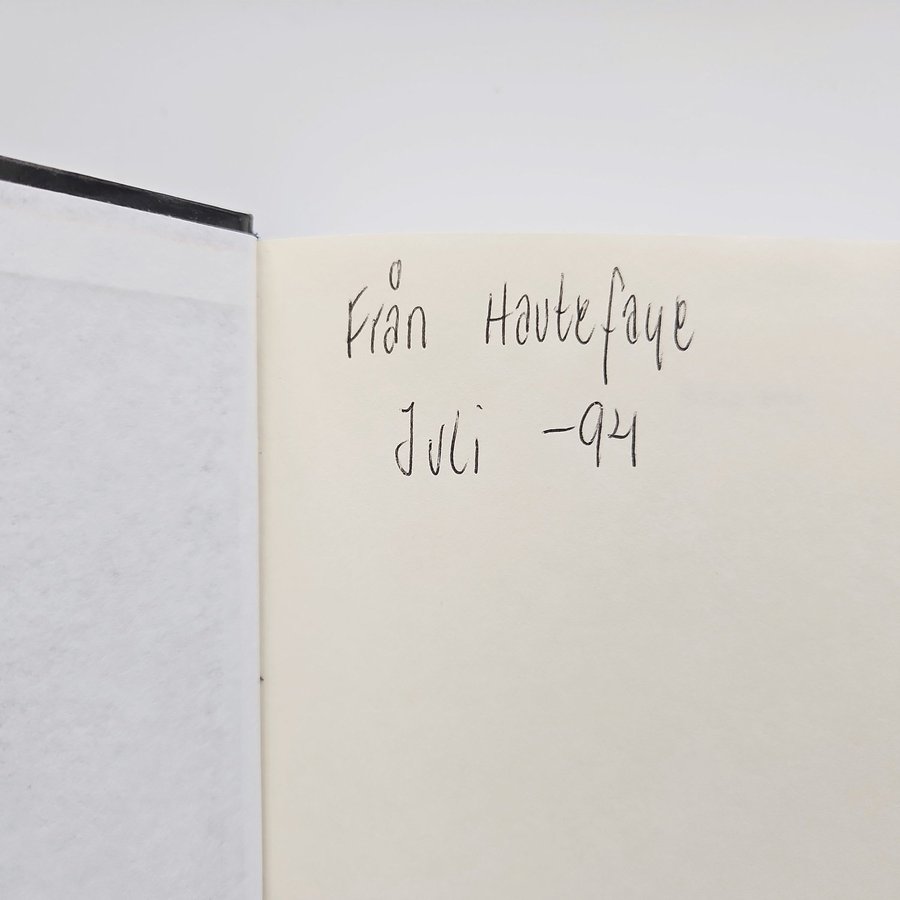 Från Hautefaye
Juli -94